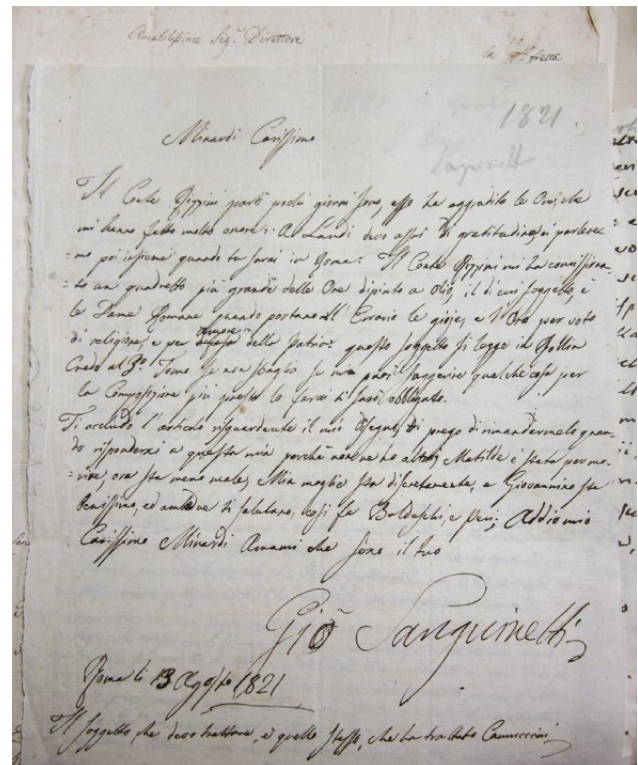 Amabilissimo Sig.r Direttore
1821
Minardi Carissimo
Il Conte Pizzini partì pochi giorni sono, esso ha aggradito le Ore, che
mi hanno fatto molto onore: A Landi devo assai di gratitudine, ci parlere
=mo poi insieme quando tu sarai in Roma: Il Conte Pizzini mi ha commissiona
=to un quadretto più grande delle Ore dipinto a olio, il di cui soggetto, è
le Dame Romane quando portano all'Errario le gioje, e l'Oro per voto
di religione, e per amore della Patria: questo soggetto si legge in Rollin
Credo al 3.o Tomo se non sbaglio se mi puoi suggerire qualche cosa per
la Composizione più presto lo farai ti sarò obbligato.
Ti accludo l'articolo risguardante il mio Disegno, ti prego di rimandarmelo quan
do risponderai a questa mia perchè non ne ho altri, Matilde è stata per mo
=rire, ora sta meno male, Mia moglie sta discretamente, e Giovannino sta
benissimo, ed ambedue ti salutano, così fa Boldeschi, e Peni, Addio mio
Carissimo Minardi Amami che sono il tuo
Gio Sanguinetti
Roma li 13 Agosto 1821
Il soggetto, che devo trattare, è quello stesso, che ha trattato Camuccini